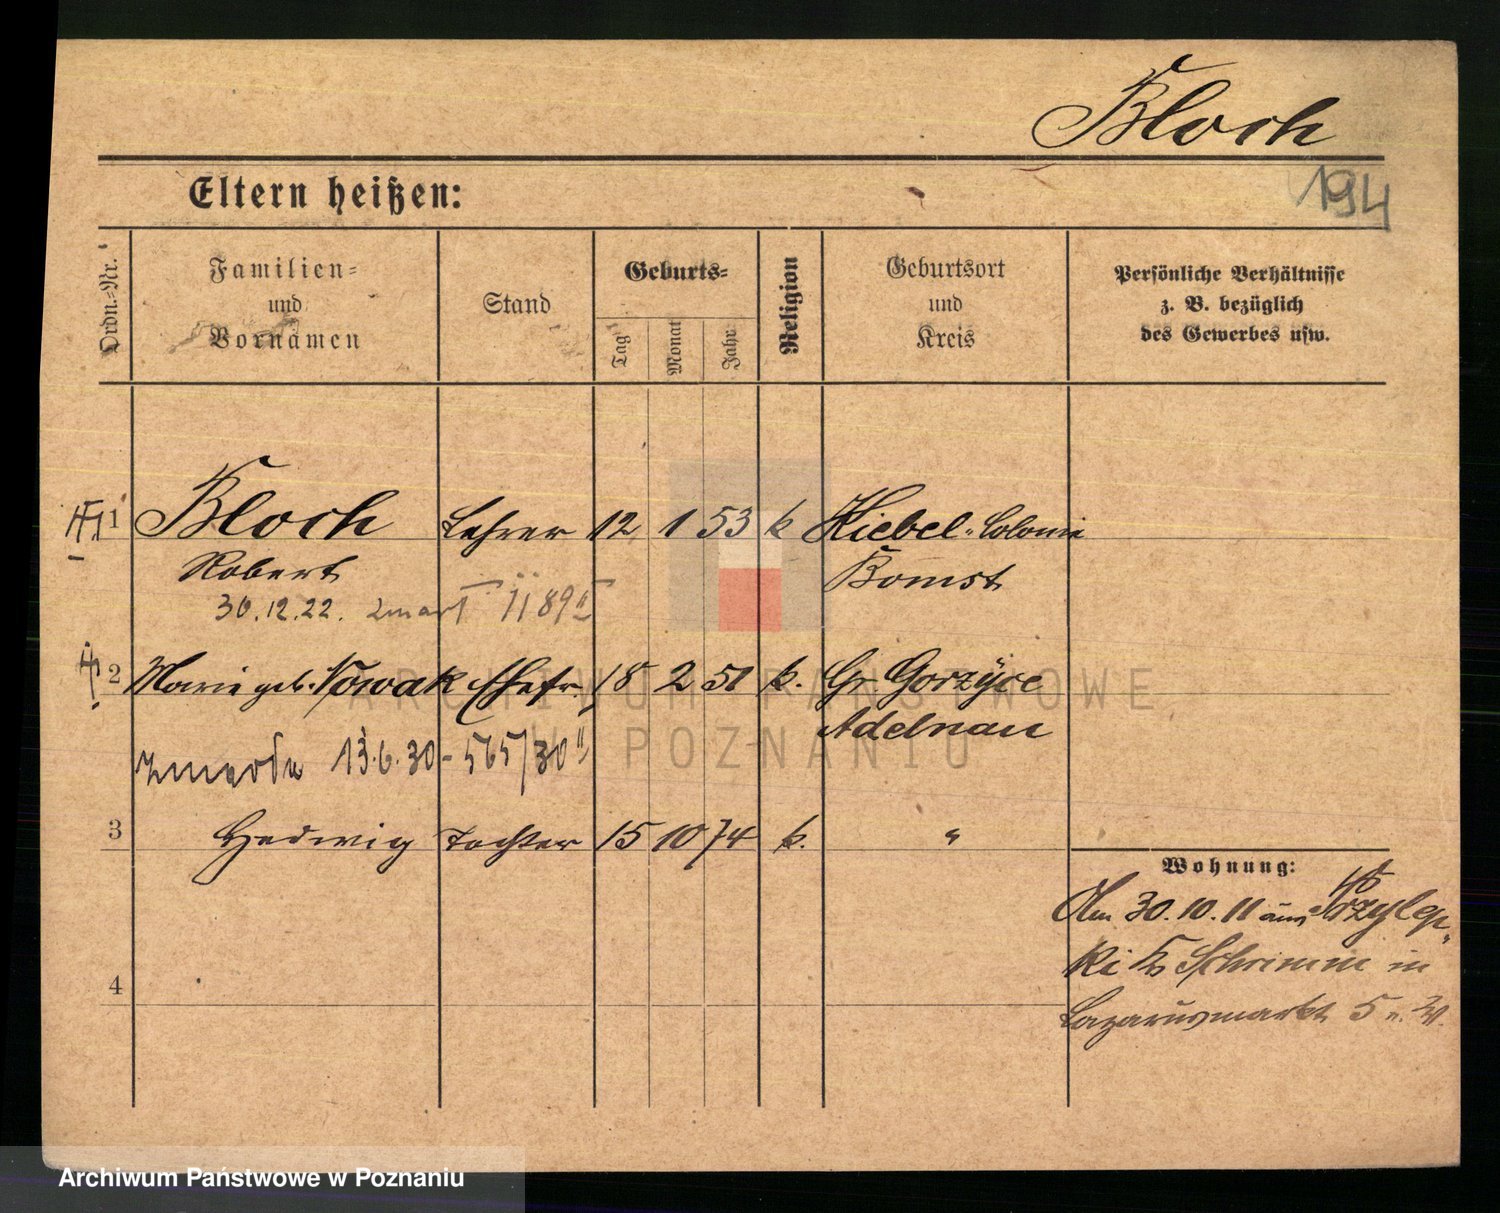 Bloch
194
Eltern heißen:
Ordn.-Nr.
Familien-
und
Vornamen
Stand
Geburts-
Tag
Monat
Jahr
Religion
Geburtsort
und
Kreis
Persönliche Verhältnisse
z. B. bezüglich
des Gewerbes usw.
1 Bloch Lehrer 12 1 53 k Kiebel-Colonie
Robert Bomst
30.12.22. zmarł 1189
2 Marie geb. Nowak Ehefr. 18 2 51 k. Gr Gorzyce
Adelnau
zmarła 13.6.30 - 565/30
3 Hedwig Tochter 15 10 74 k. "
Wohnung:
Am 30.10.11 aus Przylep-
ki Kr Schrimm in
4
Lazarusmarkt 5 b. W.
ARCHIWUM PAŃSTWOWE
W POZNANIU
Archiwum Państwowe w Poznaniu